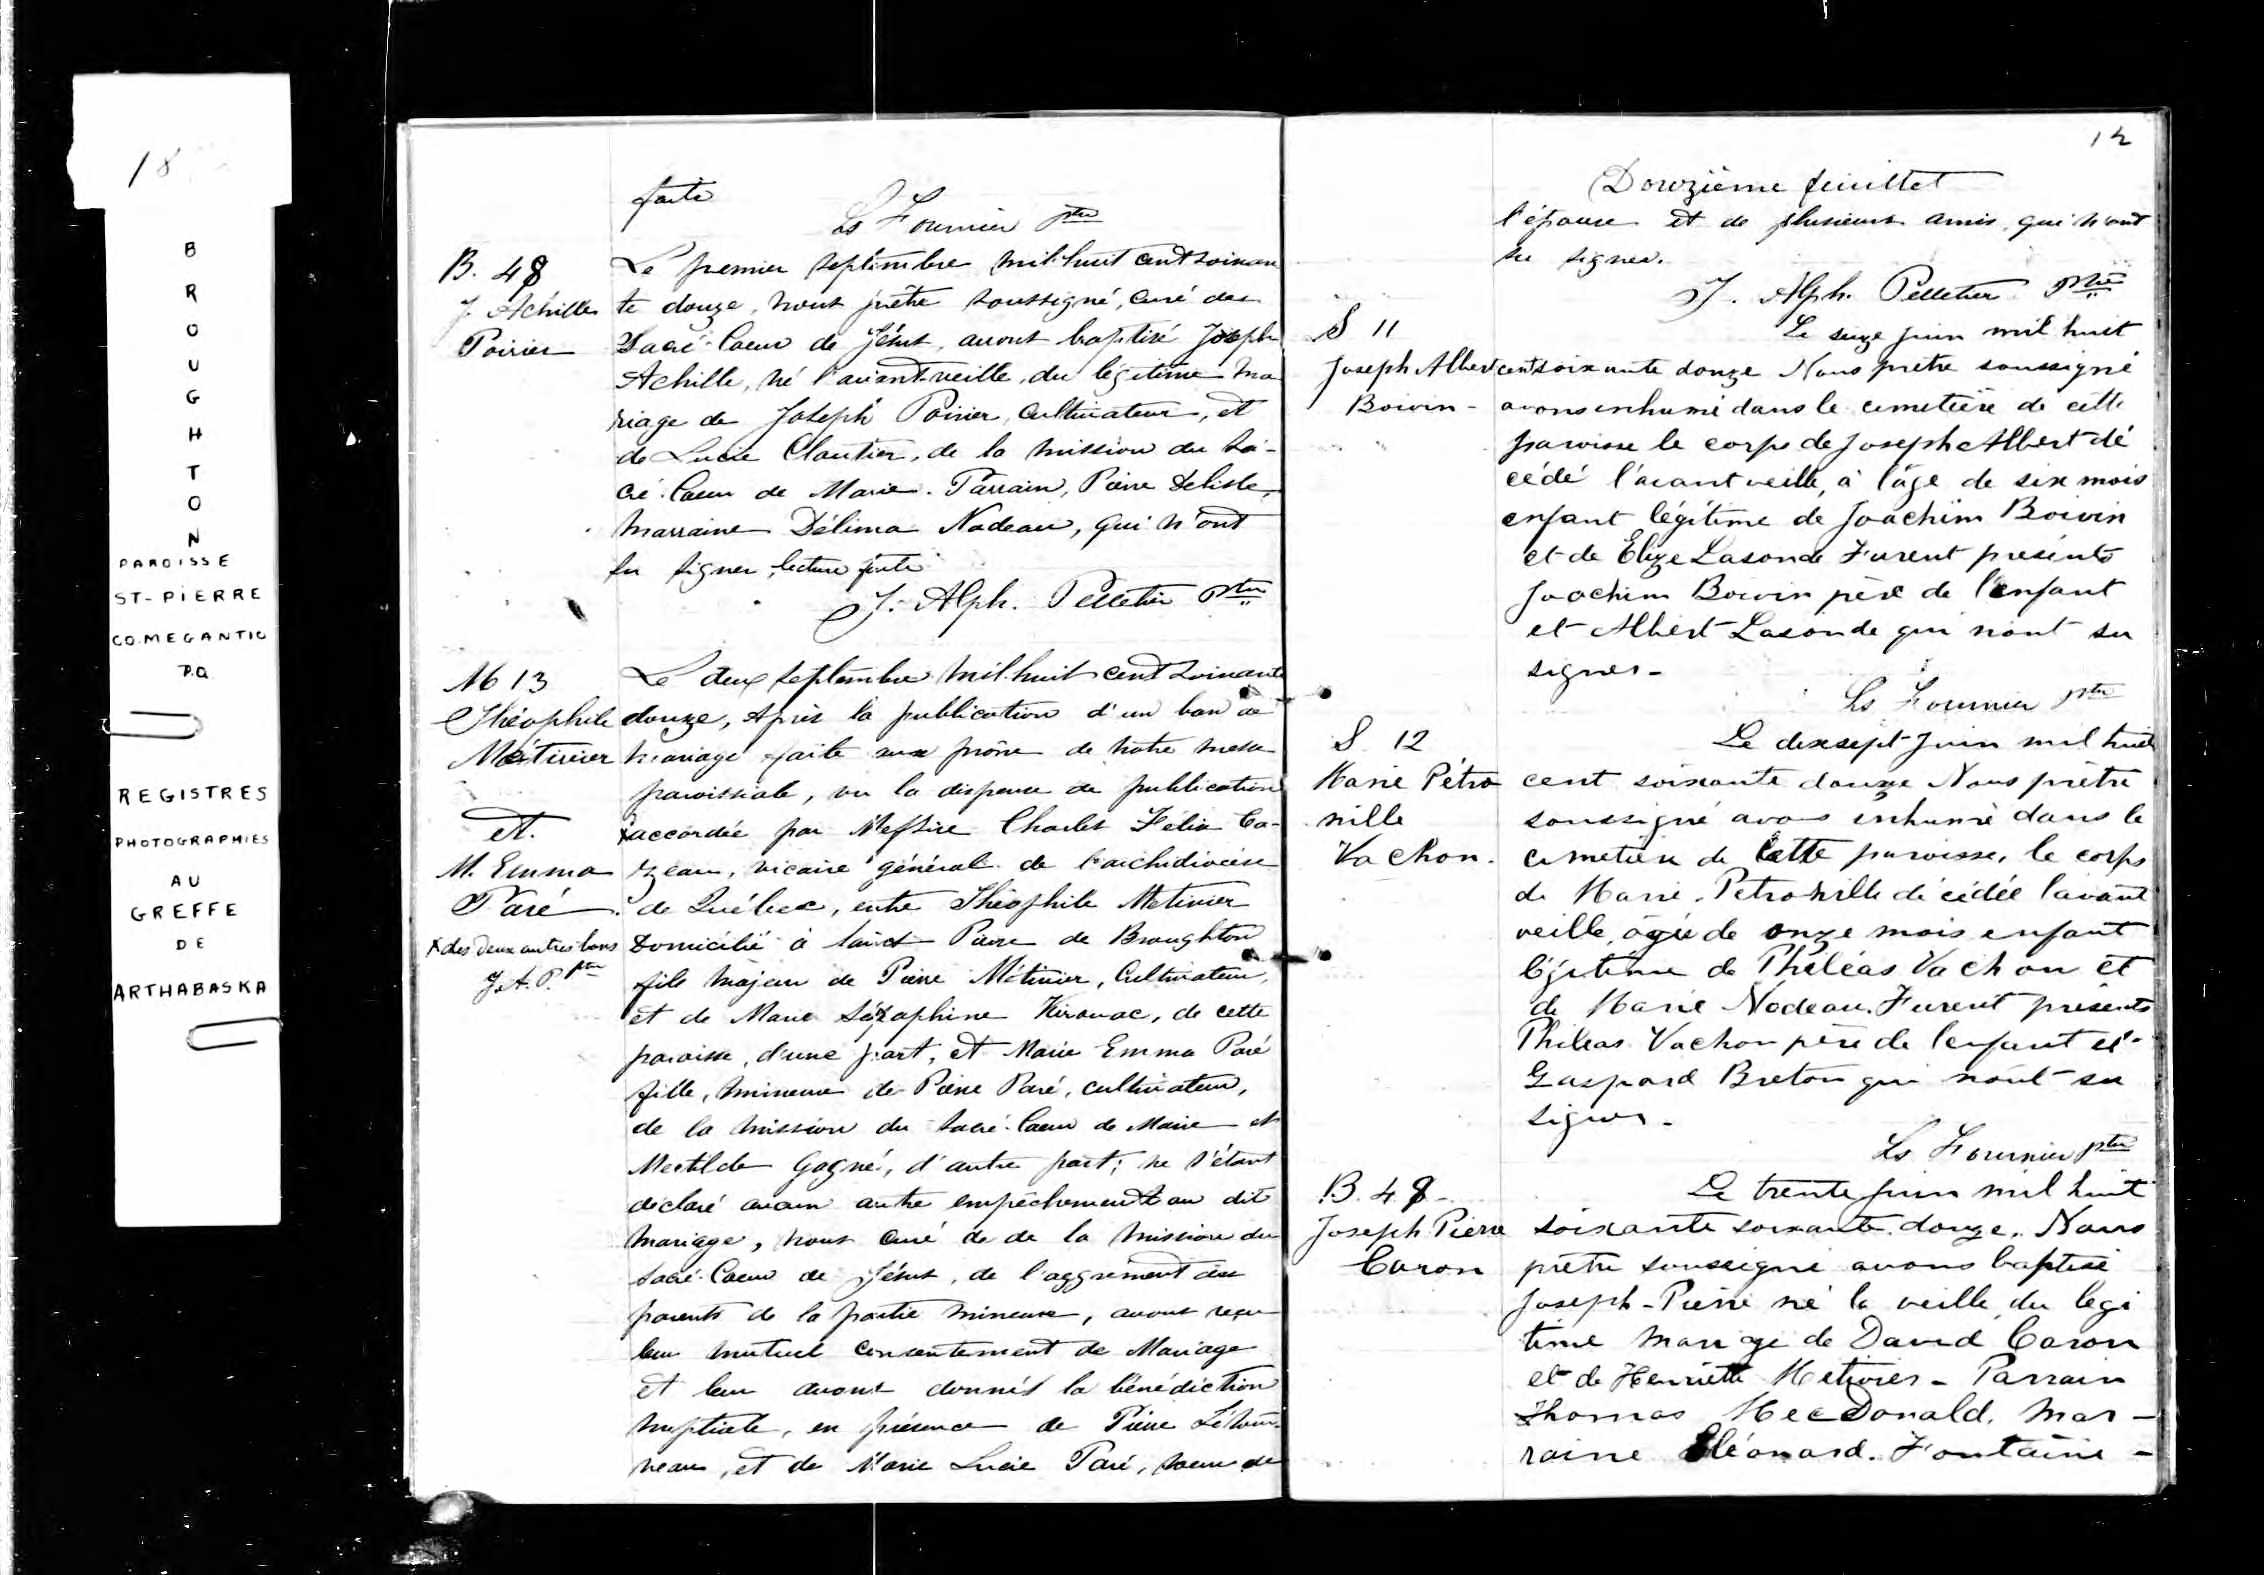 18
BROUGHTON
PAROISSE
ST-PIERRE
CO. MEGANTIC
P.Q.
REGISTRES
PHOTOGRAPHIES
AU
GREFFE
DE
ARTHABASKA
faite
Ls Fournier ptre
B. 48
J. Achille
Poirier
Le premier septembre mil-huit cent soixan
te douze, nous prêtre soussigné, curé du
Sacré-Coeur de Jésus, avons baptisé Joseph
Achille, né l'avant-veille, du légitime ma
riage de Joseph Poirier, cultivateur, et
de Lucie Cloutier, de la mission du Sa-
cré-Coeur de Marie. Parrain, Pierre Delisle,
marraine Délima Nadeau, qui n'ont
su signer, lecture faite
J. Alph. Pelletier Ptre
M 13
Théophile
Métivier
et
M. Emma
Paré
x des deux autres bans
J.A.P. ptre
Le deux septembre mil-huit cent soixante
douze, après la publication d'un ban de
mariage faite au prône de notre messe
paroissiale, vu la dispense de publication
x accordée par Messire Charles Félix Ca-
zeau, vicaire général de l'archidiocèse
de Québec, entre Théophile Metivier
Domicilié à Saint Pierre de Broughton
fils majeur de Pierre Métivier, Cultivateur,
et de Marie Séraphine Kirouac, de cette
paroisse, d'une part, et Marie Emma Paré
fille, mineure de Pierre Paré, cultivateur,
de la mission du Sacré-Coeur de Marie et
Mectilde Gagné, d'autre part; ne s'étant
déclaré aucun autre empêchement au dit
mariage, nous curé de de la mission du
Sacré-Coeur de Jésus, de l'aggrément des
parents de la partie mineure, avons reçu
leur mutuel consentement de Mariage
et leur avons donnés la bénédiction
nuptiale, en présence de Pierre Létour-
neau, et de Marie Lucie Paré, soeur de
12
Douzième feuillet
l'épouse et de plusieurs amis, qui n'ont
su signer.
J. Alph. Pelletier Ptre
S 11
Joseph Albert
Boivin -
Le seize juin mil huit
cent soixante douze Nous prêtre soussigné
avons inhumé dans le cimetière de cette
paroisse le corps de Joseph Albert dé
cédé l'avant veille, à l'âge de six mois
enfant légitime de Joachim Boivin
et de Elize Lasonde Furent présents
Joachim Boivin père de l'enfant
et Albert Lasonde qui n'ont su
signer -
Ls Fournier ptre
S. 12
Marie Pétro
nille
Vachon.
Le dixsept Juin mil huit
cent soixante douze Nous prêtre
soussigné avons inhumé dans le
cimetière de cette paroisse, le corps
de Marie. Petronille décédée l'avant
veille, âgée de onze mois enfant
légitime de Philéas Vachon et
de Marie Nadeau. Furent présents
Phileas Vachon père de l'enfant et
Gaspard Breton qui n'ont su
signer -
Ls Fournier ptre
B. 48 -
Joseph Pierre
Caron
Le trente juin mil huit
soixante soixante douze. Nous
prêtre soussigné avons baptisé
Joseph-Pierre né la veille du légi
time mariage de David Caron
et de Henriette Metivier - Parrain
Thomas MecDonald, mar-
raine Eléonard. Fontaine -